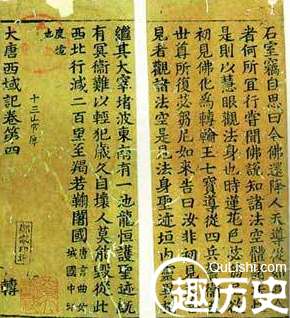 石室竊自思曰今佛還降人天導從
者何所宜行昔聞佛說知諸法空體
是則以慧眼觀法身也時蓮花色苾
初見佛化爲轉輪王七寶導從四兵
世尊所復苾芻尼如來告曰汝非初見
見者觀諸法空是見法身聖迹垣内靈
繼其大窣堵波東南有一池龍恒護聖迹旣
有冥衞難以輕犯歲久自壞人莫能毀從此
西北行減二百里至羯若鞠闍國 唐言曲女城國中印
度境也
大唐西域記卷第四
QuLiShi.com
趣历史